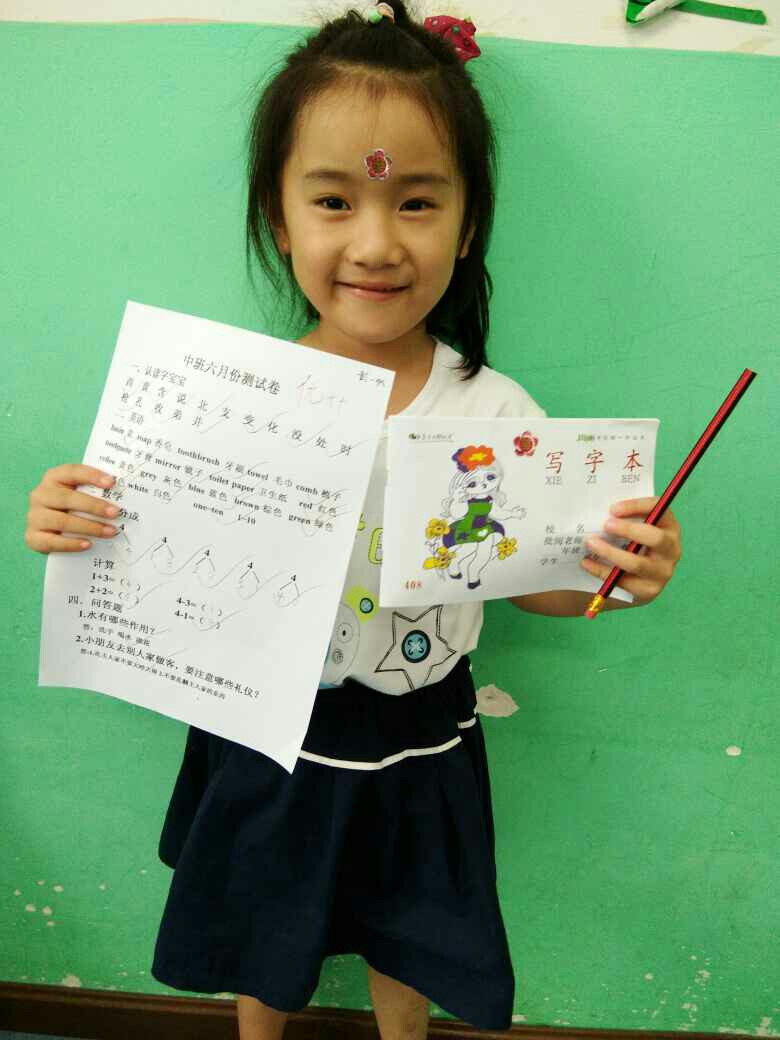 中班六月份测试卷
优++
一、认读字宝宝
首 黄 含 说 北 支 变 化 没 处 时
枪 孔 收 弟 井
二、英语
hair 发 soap 香皂 toothbrush 牙刷 towel 毛巾 comb 梳子
toothpaste 牙膏 mirror 镜子 toilet paper 卫生纸 red 红色
yellow 黄色 grey 灰色 blue 蓝色 brown 棕色 green 绿色
色 white 白色 one-ten 1-10
数学
分成
4 4 4 4 4
计算
1+3=(4) 4-3=(1)
2+2=( ) 4-1=(3)
四、问答题
1.水有哪些作用?
答:洗手 喝水
2.小朋友去别人家做客,要注意哪些礼仪?
写字本
XIE ZI BEN
校 名
批阅老师
年级
学生
408